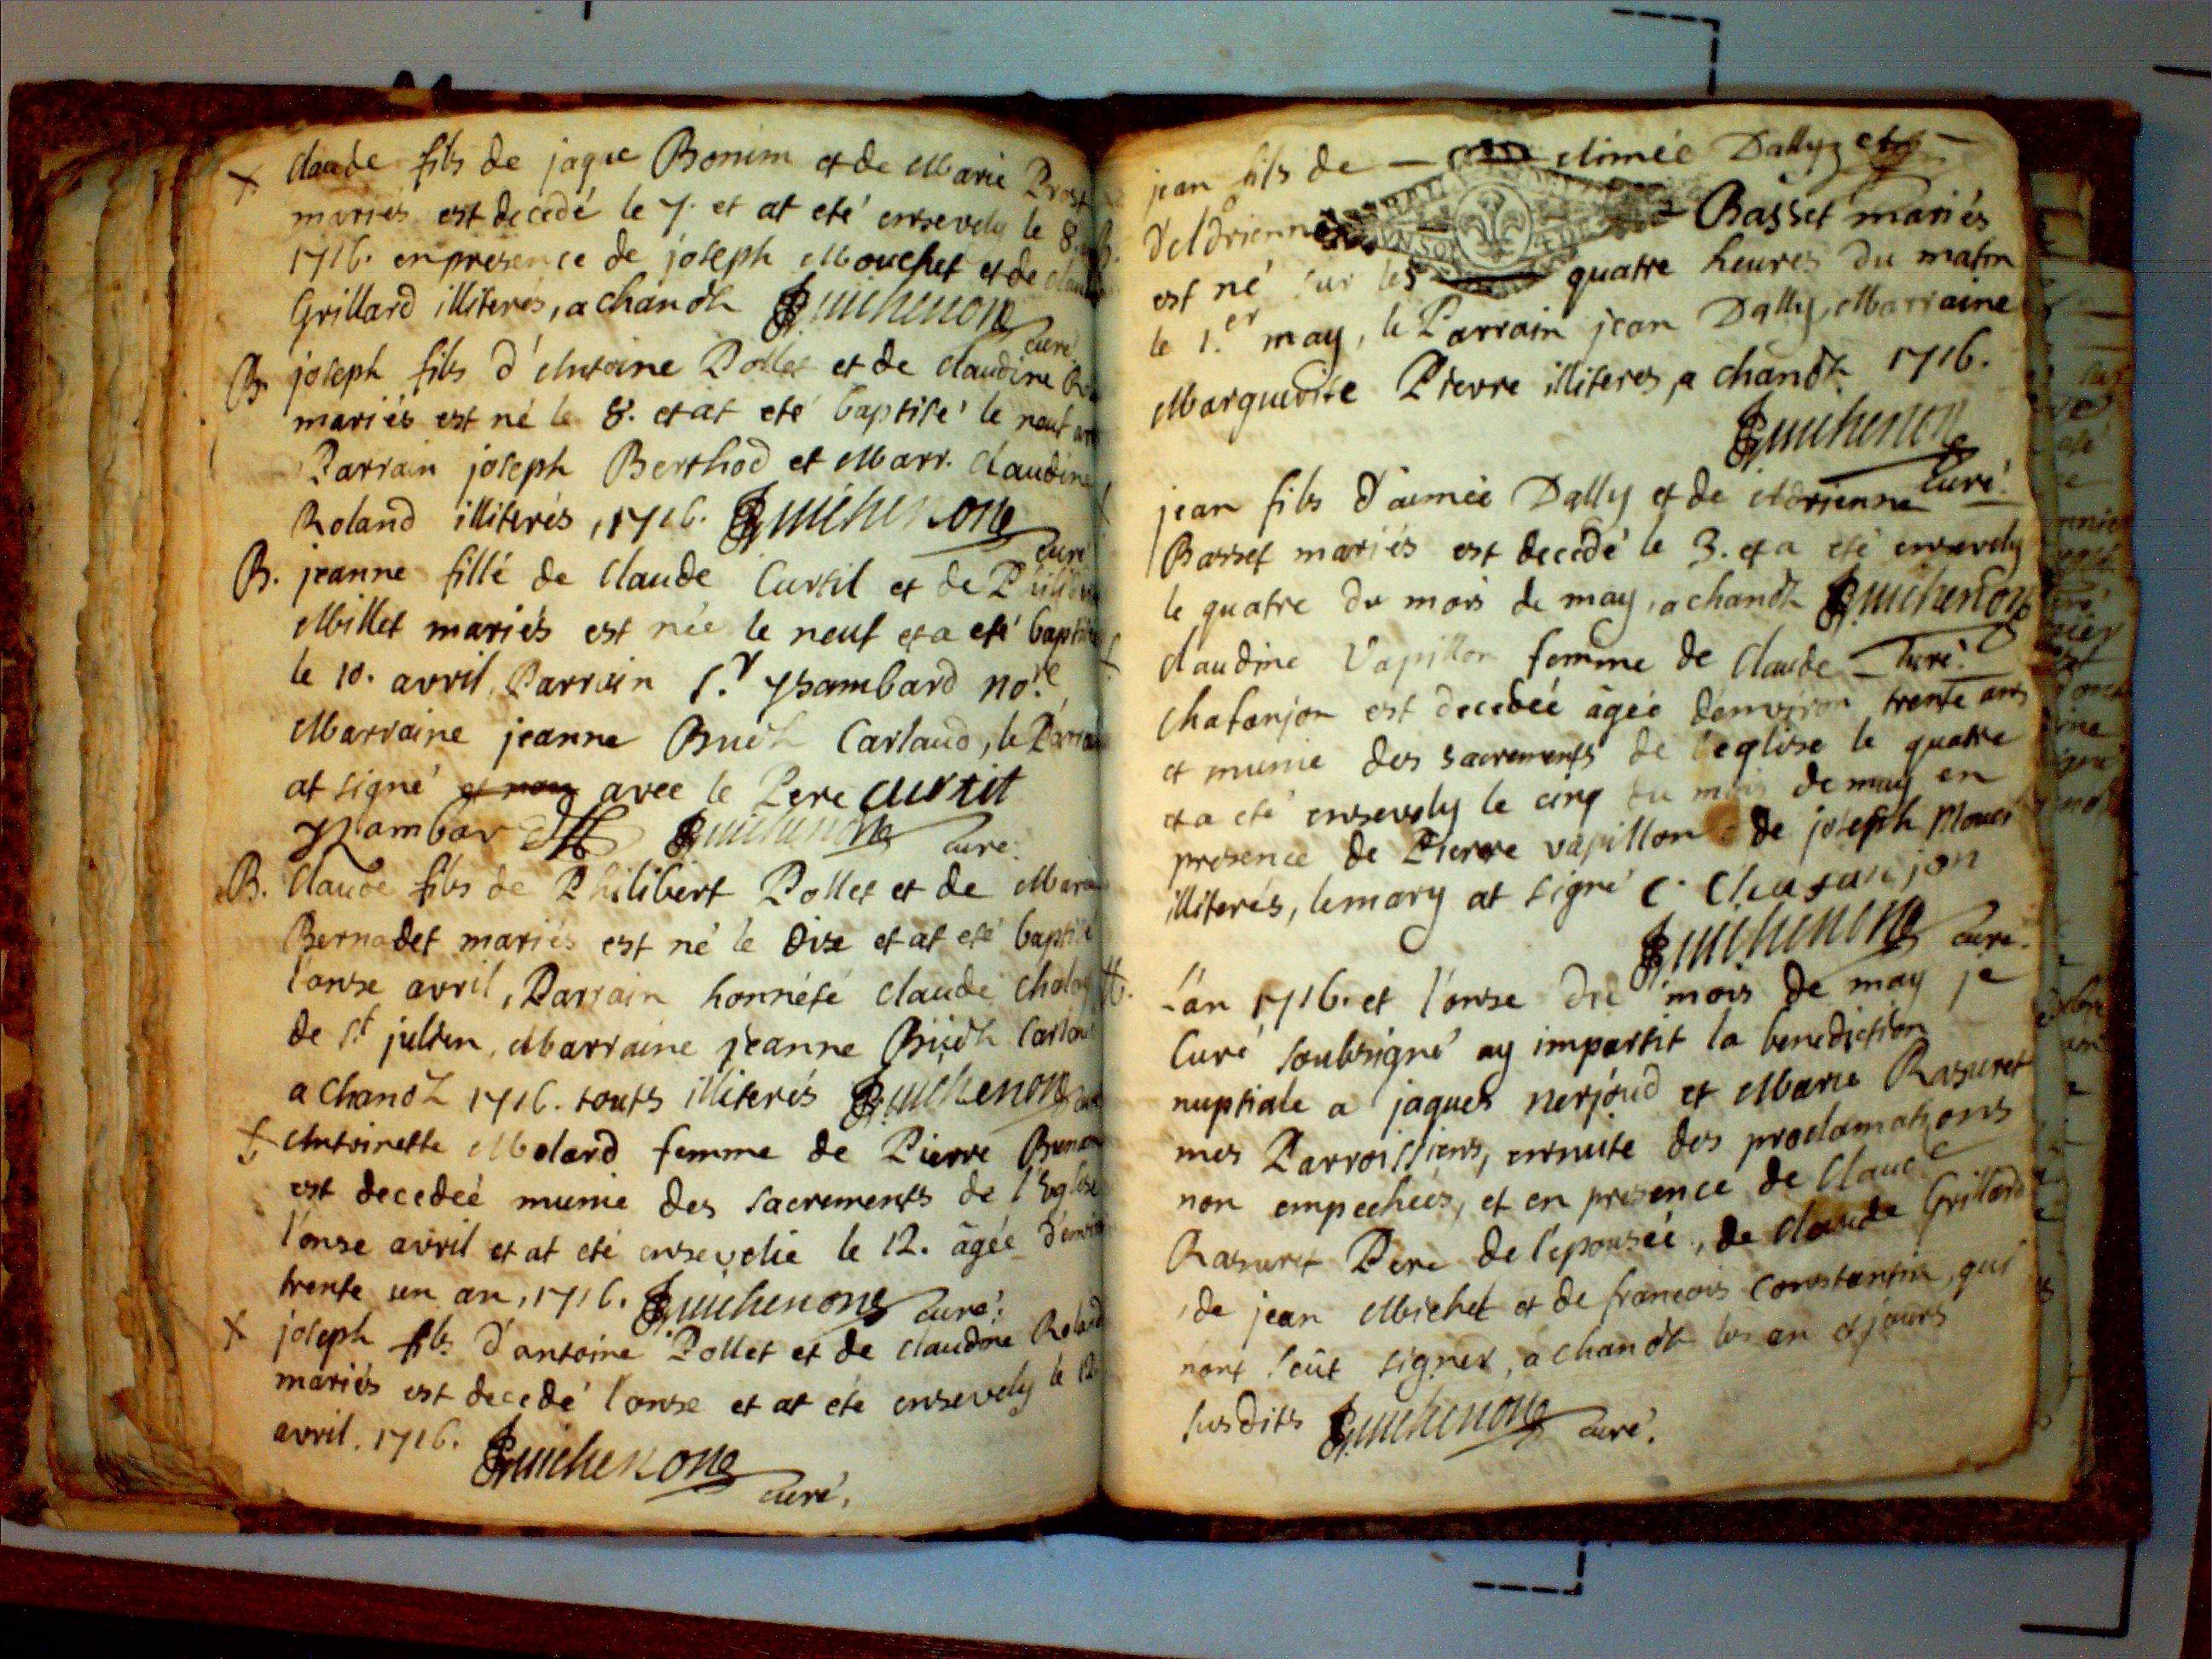 + Claude fils de jaque Bonim et de Marie Prost
mariés est decedé le 7. et at eté ensevely le 8.
1716. en presence de joseph Mouchet et de
Grillard illiterés, a chandt Guichenon
curé
B. joseph fils d'Antoine Pollet et de claudine
mariés est né le 8. et at eté baptisé le neuf
Parrain joseph Berthod et Marr. Claudine
Roland illiterés, 1716. Guichenon
curé
B. jeanne fille de Claude Curtil et de
Millet mariés est née le neuf et a eté
le 10. avril, Parrain Sr. Ysambard nore.
Marraine jeanne Carlaud, le
at signé et non avec le Pere curtil
Ysambard Guichenon curé.
B. Claude fils de Philibert Pollet et de
Bernadet mariés est né le dixe et at eté baptisé
l'onse avril, Parrain honnéte claude
de st julien, Marraine jeanne
a Chandt 1716. touts illiterés Guichenon
+ Antoinette Molard femme de Pierre
est decedeé munie des sacrements de l'Eglise
l'onse avril et at eté ensevelie le 12. âgée
trente un an, 1716. Guichenon curé.
+ joseph fils d'antoine Pollet et de claudine Roland
mariés est decedé l'onse et at eté ensevely le 12
avril. 1716. Guichenon
curé.
jean fils de — Aimée Dally et
d'Adrienne Basset mariés
est né sur les quatre heures du matin
le 1.er may, le Parrain jean Dally, Marraine
Marguerite Pierre illiteres, a chandt 1716.
Guichenon
curé.
jean fils d'aimée Dally et de Adrienne
Basset mariés est decedé le 3. et a eté ensevely
le quatre du mois de may, a chandt Guichenon
curé.
claudine Vapillon femme de Claude
Chatanjon est decedeé âgée d'environ trente ans
et munie des sacrements de l'eglise le quatre
et a eté ensevely le cinq du mois de may en
presence de Pierre vapillon de joseph
illiterés, le mary at signé C. Chatanjon
Guichenon curé.
M. L'an 1716. et l'onse du mois de may je
Curé soubsigné ay impartit la benediction
nuptiale a jaques nerjoud et Marie Rasuret
mes Parroissiens, ensuite des proclamations
non empecheés, et en presence de Claude
Rasuret Pere de l'epouseé, de claude Grillard
, de jean Michel et de francois Constantin, qui
n'ont sçût signer, a chandt les an et jours
susdits Guichenon curé.